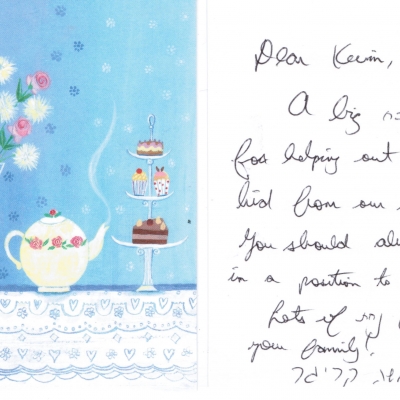 Dear Kevin,
A big
for helping out
kid from our
You should
in a position to
Lots of
your family!
קריגר